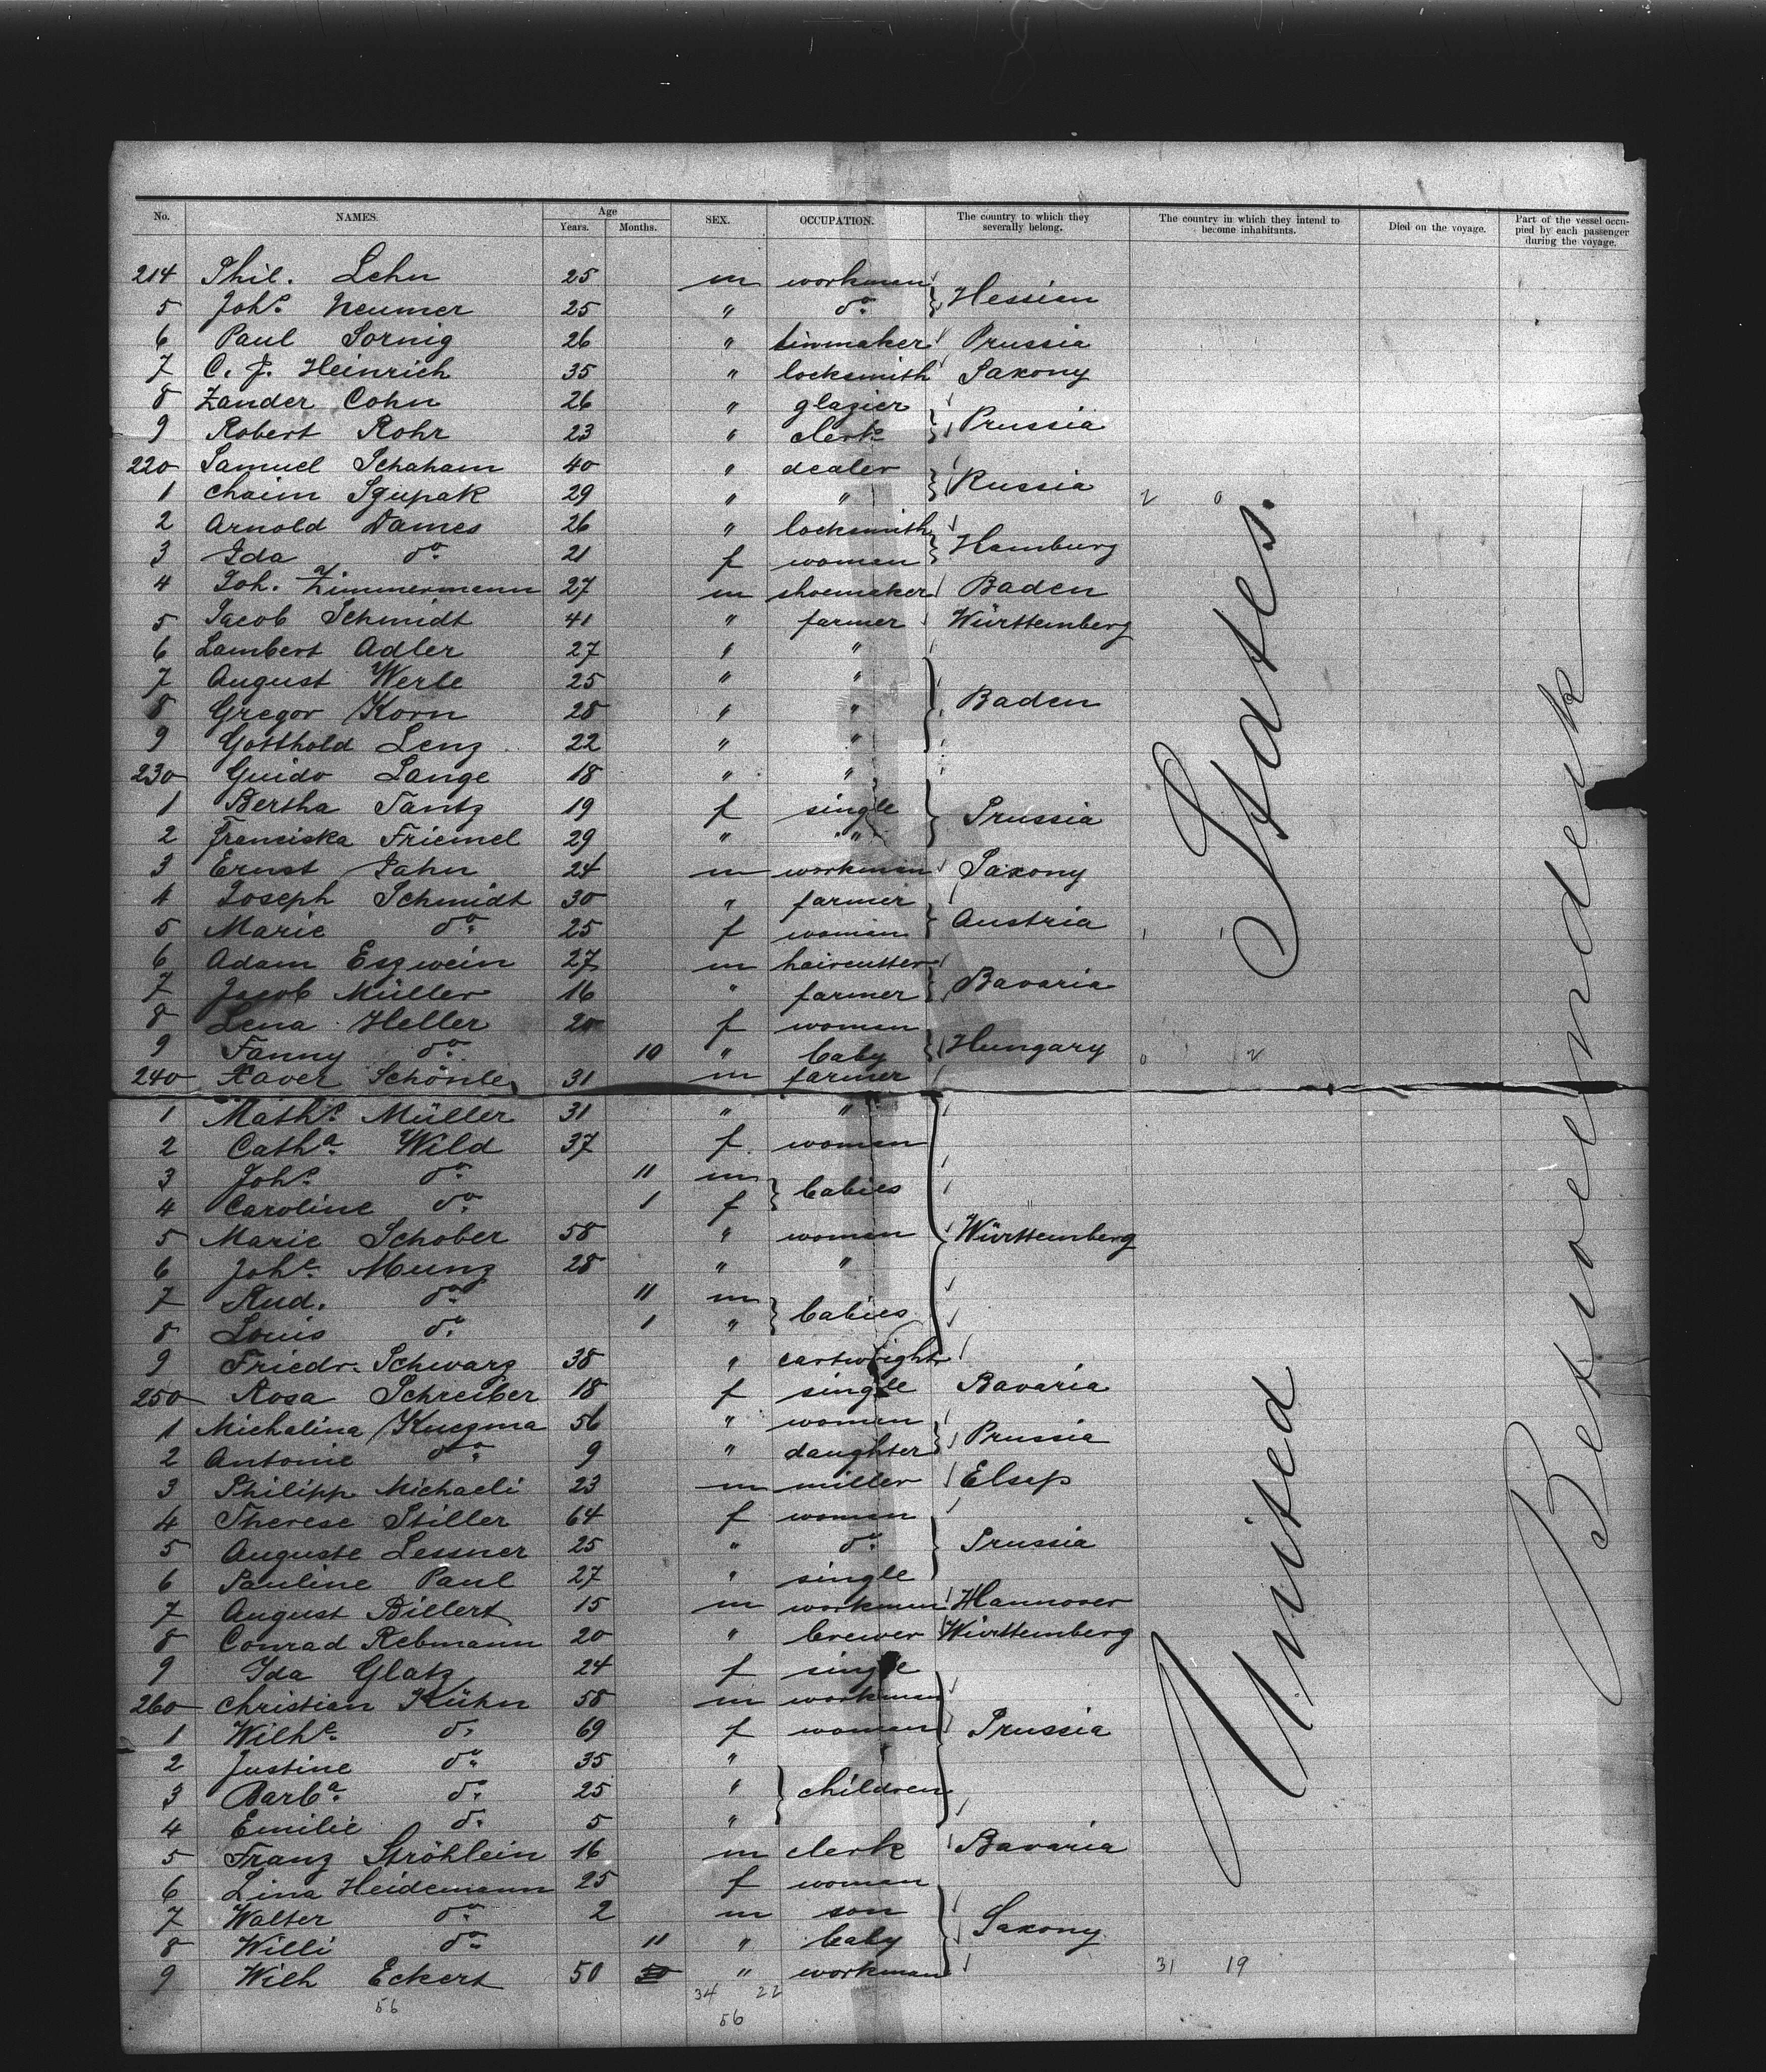 No. NAMES. Age Years. Months. SEX. OCCUPATION. The country to which they severally belong. The country in which they intend to become inhabitants. Died on the voyage. Part of the vessel occupied by each passenger during the voyage.
214 Phil. Lehn 25 m workman Hessien
5 Johs. Neumer 25 " do.
6 Paul Sornig 26 " tinmaker Prussia
7 C. J. Heinrich 35 " locksmith Saxony
8 Zander Cohn 26 " glazier Prussia
9 Robert Rohr 23 " clerk
220 Samuel Schaham 40 " dealer Russia
1 Chaim Szupak 29 " " 2 0
2 Arnold Dames 26 " locksmith Hamburg
3 Ida do. 21 f woman
4 Joh. Zimmermann 27 m shoemaker Baden
5 Jacob Schmidt 41 " farmer Württemberg
6 Lambert Adler 27 " "
7 August Werle 25 " " Baden
8 Gregor Korn 28 " "
9 Gotthold Lenz 22 " "
230 Guido Lange 18 " "
1 Bertha Tantz 19 f single Prussia
2 Franciska Friemel 29 " "
3 Ernst Jahn 24 m workman Saxony
4 Joseph Schmidt 30 " farmer Austria
5 Marie do. 25 f woman 1 1
6 Adam Eszwein 27 m haircutter Bavaria
7 Jacob Müller 16 " farmer
8 Lena Heller 20 f woman Hungary
9 Fanny do. 10 " baby 0 2
240 Xaver Schönle 31 m farmer
1 Maths. Müller 31 " "
2 Catha. Wild 37 f woman
3 Johs. do. 11 m babies
4 Caroline do. 1 f
5 Marie Schober 58 " woman Württemberg
6 Johe. Munz 28 " "
7 Rud. do. 11 m babies
8 Louis do. 1 "
9 Friedr. Schwarz 38 " cartwright
250 Rosa Schreiber 18 f single Bavaria
1 Michalina Kuczma 56 " woman Prussia
2 Antonie do. 9 " daughter
3 Philipp Michaeli 23 m miller Elsass
4 Therese Stiller 64 f woman
5 Auguste Lessner 25 " do. Prussia
6 Pauline Paul 27 " single
7 August Billert 15 m workman Hannover
8 Conrad Rebmann 20 " brewer Württemberg
9 Ida Glatz 24 f single
260 Christian Kühn 58 m workman
1 Wilhe. do. 69 f woman Prussia
2 Justine do. 35 "
3 Barba. do. 25 " children
4 Emilie do. 5 "
5 Franz Ströhlein 16 m clerk Bavaria
6 Lina Heidemann 25 f woman
7 Walter do. 2 m son Saxony
8 Willi do. 11 " baby
9 Wilh Eckert 50 " workman 31 19
56 34 22
56
United States.
Betweendeck